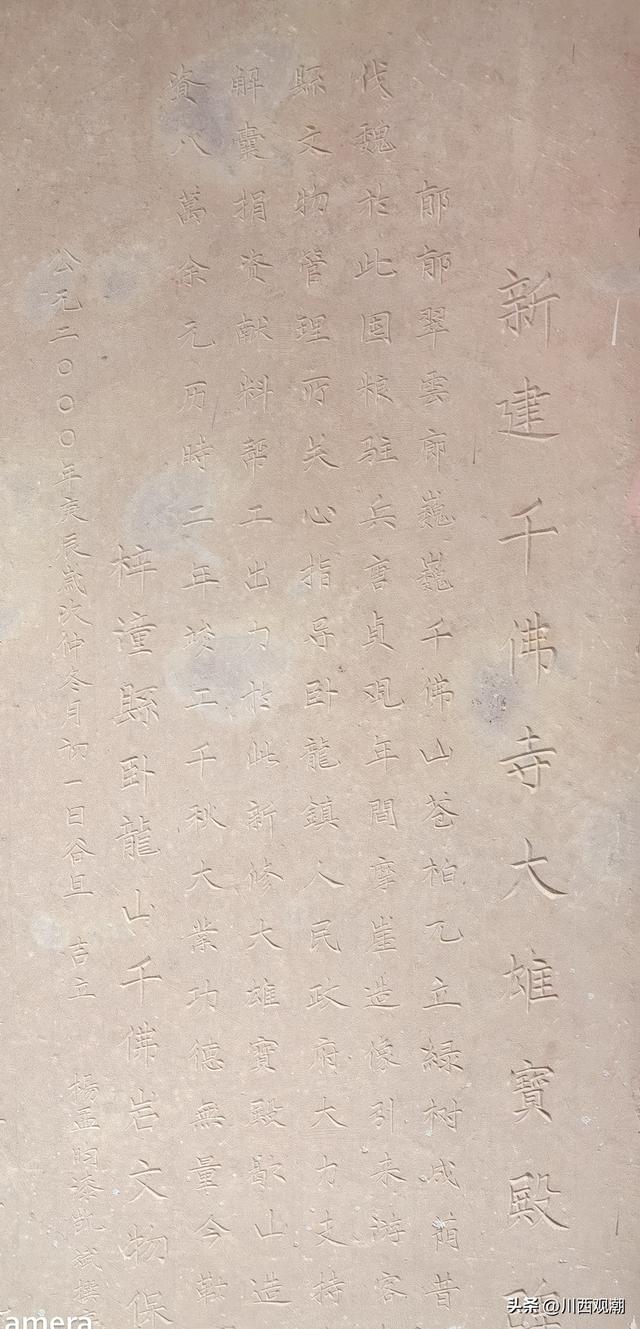 新建千佛寺大雄寳殿碑
郁郁翠雲廊巍巍千佛山苍柏兀立緑树成荫昔
伐魏於此囤粮驻兵唐贞观年間摩崖造像引来游客
縣文物管理所关心指导卧龍鎮人民政府大力支持
解囊捐资献料帮工出力於此新修大雄寳殿歇山造
資八萬余元历時二年竣工千秋大業功德無量今勒
梓潼縣卧龍山千佛岩文物保
公元二〇〇〇年庚辰歲次仲冬月初一日谷旦 吉立 楊孟昀漆凯斌撰
頭条 @川西观潮
amera